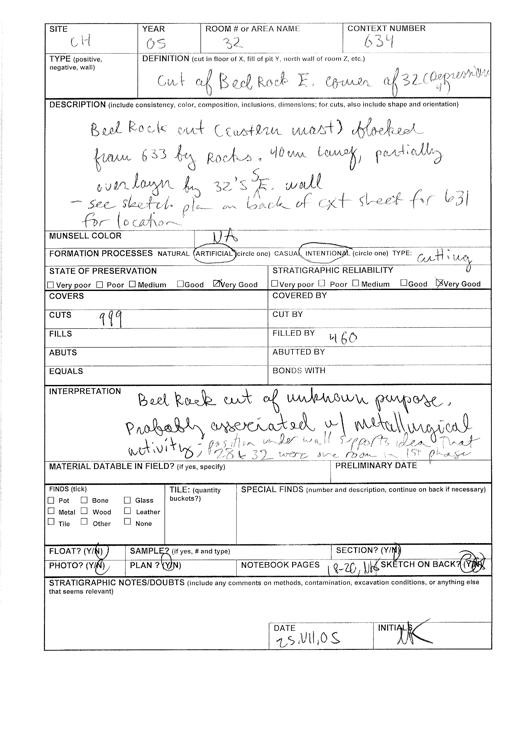 SITE YEAR ROOM # or AREA NAME CONTEXT NUMBER
CH 05 32 634
TYPE (positive, negative, wall) DEFINITION (cut in floor of X, fill of pit Y, north wall of room Z, etc.)
Cut of Bed Rock E. corner of 32 (Depression
DESCRIPTION (include consistency, color, composition, inclusions, dimensions; for cuts, also include shape and orientation)
Bed Rock cut (eastern most) blocked
from 633 by Rocks. 40cm , partially
overlayn by 32's S/E. wall
- see sketch plan on back of cxt sheet for 631
for location
MUNSELL COLOR NA
FORMATION PROCESSES NATURAL ARTIFICIAL (circle one) CASUAL INTENTIONAL (circle one) TYPE: cutting
STATE OF PRESERVATION STRATIGRAPHIC RELIABILITY
Very poor Poor Medium Good Very Good Very poor Poor Medium Good Very Good
COVERS COVERED BY
CUTS 999 CUT BY
FILLS FILLED BY 460
ABUTS ABUTTED BY
EQUALS BONDS WITH
INTERPRETATION
Bed Rock cut of unknown purpose.
Probably associated w/ metallurgical
activity - position under wall supports idea that
28 & 32 were one room in 1st phase
MATERIAL DATABLE IN FIELD? (if yes, specify) PRELIMINARY DATE
FINDS (tick) TILE: (quantity buckets?) SPECIAL FINDS (number and description, continue on back if necessary)
Pot Bone Glass
Metal Wood Leather
Tile Other None
FLOAT? (Y/N) SAMPLE? (if yes, # and type) SECTION? (Y/N)
PHOTO? (Y/N) PLAN ? (Y/N) NOTEBOOK PAGES 18-20, SKETCH ON BACK? (Y/N)
STRATIGRAPHIC NOTES/DOUBTS (include any comments on methods, contamination, excavation conditions, or anything else
that seems relevant)
DATE INITIALS
25.VII.05